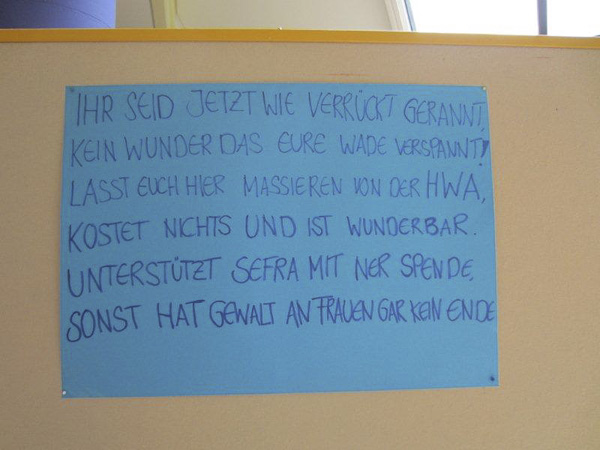 IHR SEID JETZT WIE VERRÜCKT GERANNT,
KEIN WUNDER DAS EURE WADE VERSPANNT!
LASST EUCH HIER MASSIEREN VON DER HWA,
KOSTET NICHTS UND IST WUNDERBAR.
UNTERSTÜTZT SEFRA MIT NER SPENDE,
SONST HAT GEWALT AN FRAUEN GAR KEIN ENDE